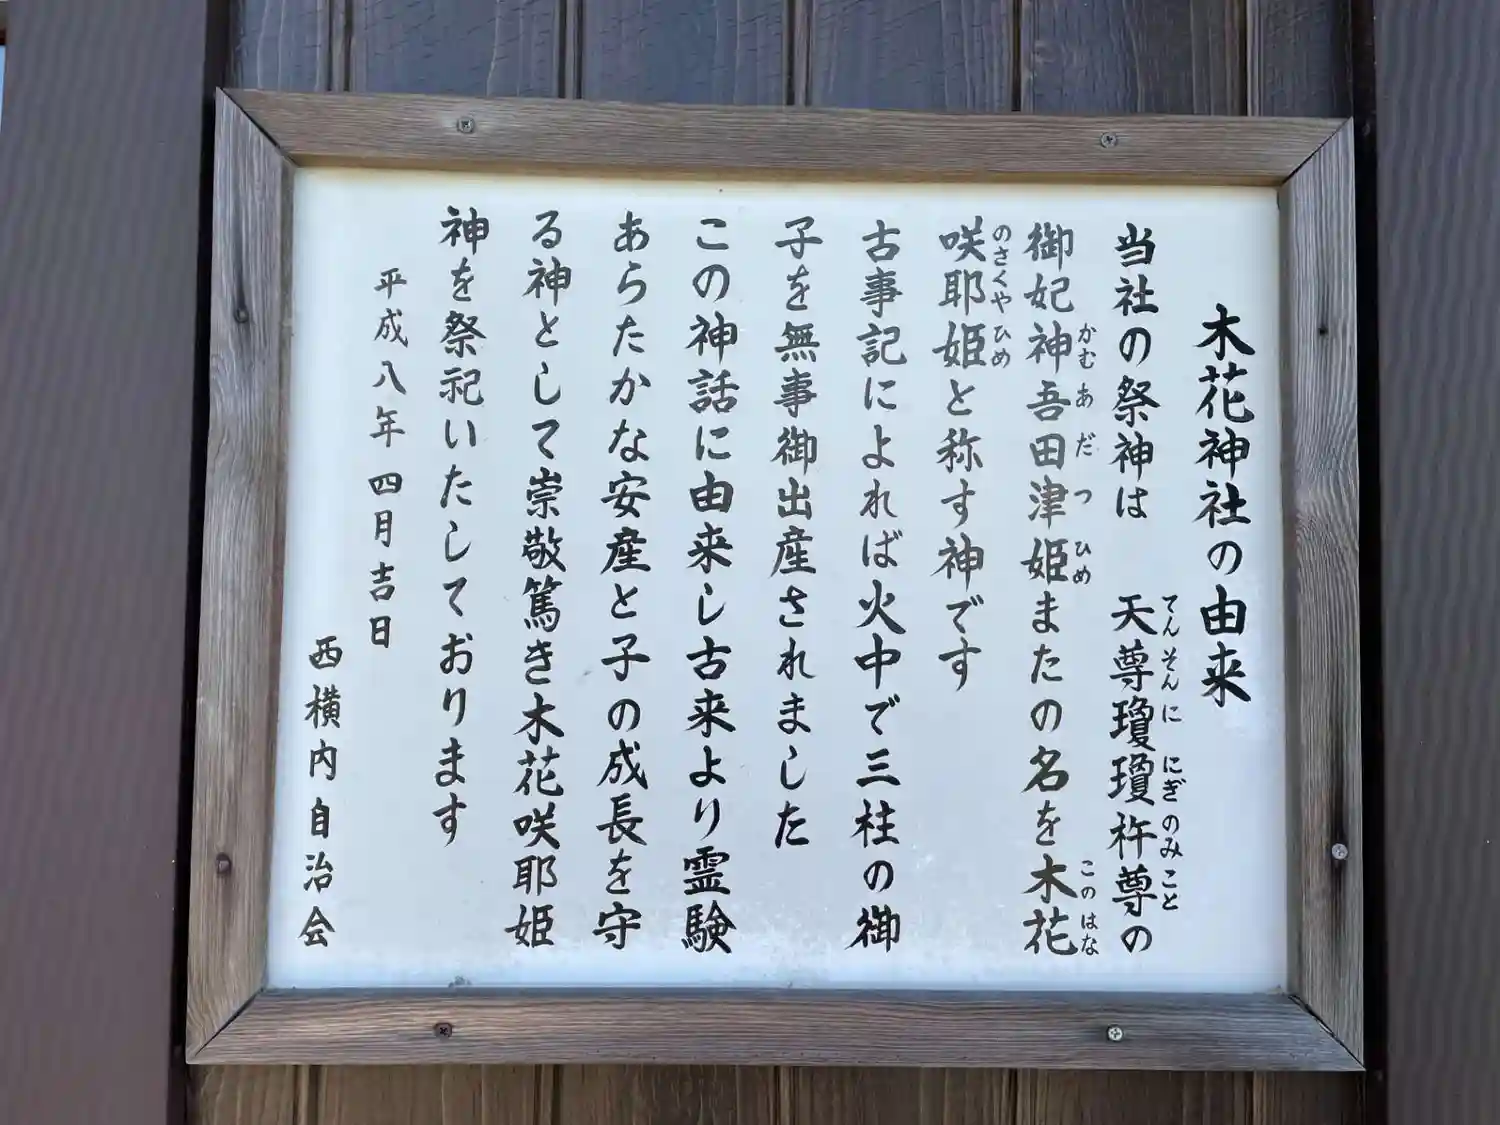 木花神社の由来
当社の祭神は　天尊瓊瓊杵尊の
てんそんに にぎのみこと
御妃神吾田津姫またの名を木花
かむあだつひめ このはな
咲耶姫と称す神です
のさくやひめ
古事記によれば火中で三柱の御
子を無事御出産されました
この神話に由来し古来より霊験
あらたかな安産と子の成長を守
る神として崇敬篤き木花咲耶姫
神を祭祀いたしております
平成八年四月吉日
西横内自治会